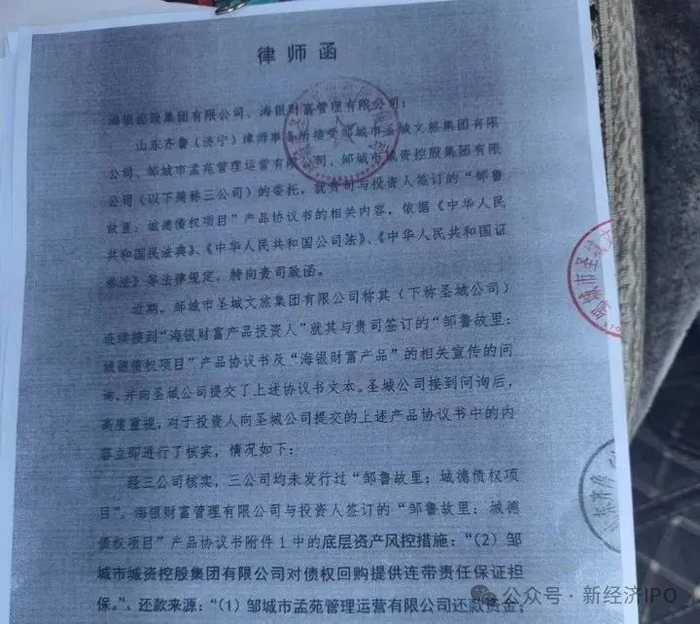 律师函
海银控股集团有限公司、海银财富管理有限公司:
山东齐鲁(济宁)律师事务所接受邹城市圣城文旅集团有限
公司、邹城市孟苑管理运营有限公司、邹城市城资控股集团有限
公司(以下简称三公司)的委托,就贵司与投资人签订的“邹鲁
故里:城德债权项目”产品协议书的相关内容,依据《中华人民
共和国民法典》、《中华人民共和国公司法》、《中华人民共和国证
券法》等法律规定,特向贵司致函。
近期,邹城市圣城文旅集团有限公司称其(下称圣城公司)
连续接到“海银财富产品投资人”就其与贵司签订的“邹鲁故里:
城德债权项目”产品协议书及“海银财富产品”的相关宣传的问
询,并向圣城公司提交了上述协议书文本。圣城公司接到问询后,
高度重视,对于投资人向圣城公司提交的上述产品协议书中的内
容立即进行了核实,情况如下:
经三公司核实,三公司均未发行过“邹鲁故里:城德债权项
目”。海银财富管理有限公司与投资人签订的“邹鲁故里:城德
债权项目”产品协议书附件1中的底层资产风控措施:“(2)邹
城市城资控股集团有限公司对债权回购提供连带责任保证担
保。”、还款来源:“(1)邹城市孟苑管理运营有限公司还款资金;
邹城市圣城文
公众号·新经济IPO